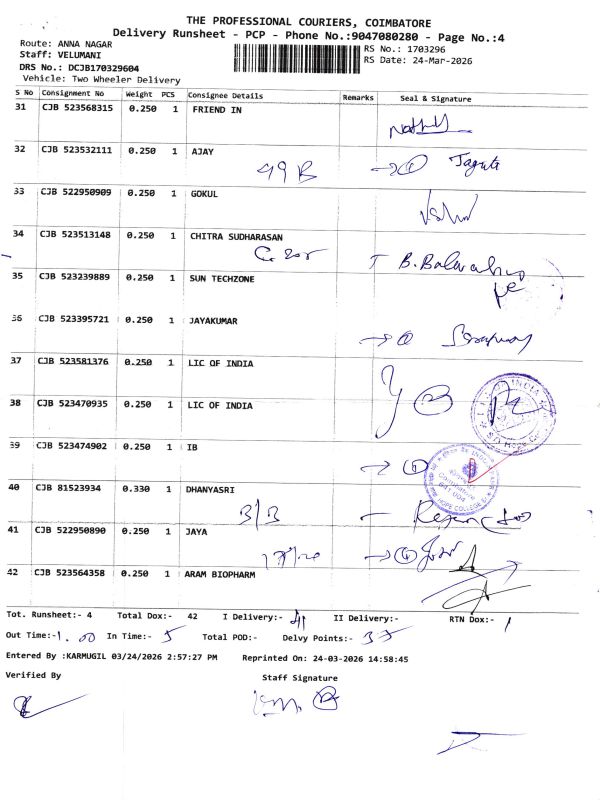 THE PROFESSIONAL COURIERS, COIMBATORE
Delivery Runsheet - PCP - Phone No.:9047080280 - Page No.:4
Route: ANNA NAGAR
Staff: VELUMANI
DRS No.: DCJB170329604
Vehicle: Two Wheeler Delivery
RS No.: 1703296
RS Date: 24-Mar-2026
S No Consignment No Weight PCS Consignee Details Remarks Seal & Signature
31 CJB 523568315 0.250 1 FRIEND IN
32 CJB 523532111 0.250 1 AJAY
49 B
33 CJB 522950909 0.250 1 GOKUL
34 CJB 523513148 0.250 1 CHITRA SUDHARASAN
35 CJB 523239889 0.250 1 SUN TECHZONE
36 CJB 523395721 0.250 1 JAYAKUMAR
37 CJB 523581376 0.250 1 LIC OF INDIA
38 CJB 523470935 0.250 1 LIC OF INDIA
39 CJB 523474902 0.250 1 IB
40 CJB 81523934 0.330 1 DHANYASRI
41 CJB 522950890 0.250 1 JAYA
42 CJB 523564358 0.250 1 ARAM BIOPHARM
Tot. Runsheet:- 4 Total Dox:- 42 I Delivery:- 41 II Delivery:- RTN Dox:- 1
Out Time:- 1.00 In Time:- 5 Total POD:- Delvy Points:- 37
Entered By :KARMUGIL 03/24/2026 2:57:27 PM Reprinted On: 24-03-2026 14:58:45
Verified By Staff Signature